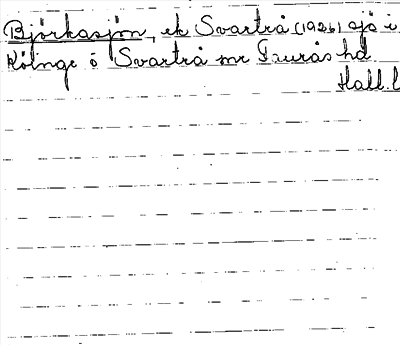 Björkasjön, ek Svartrå (1926) sjö i
Källnge o Svartrå snr Faurås hd.
Hall. l